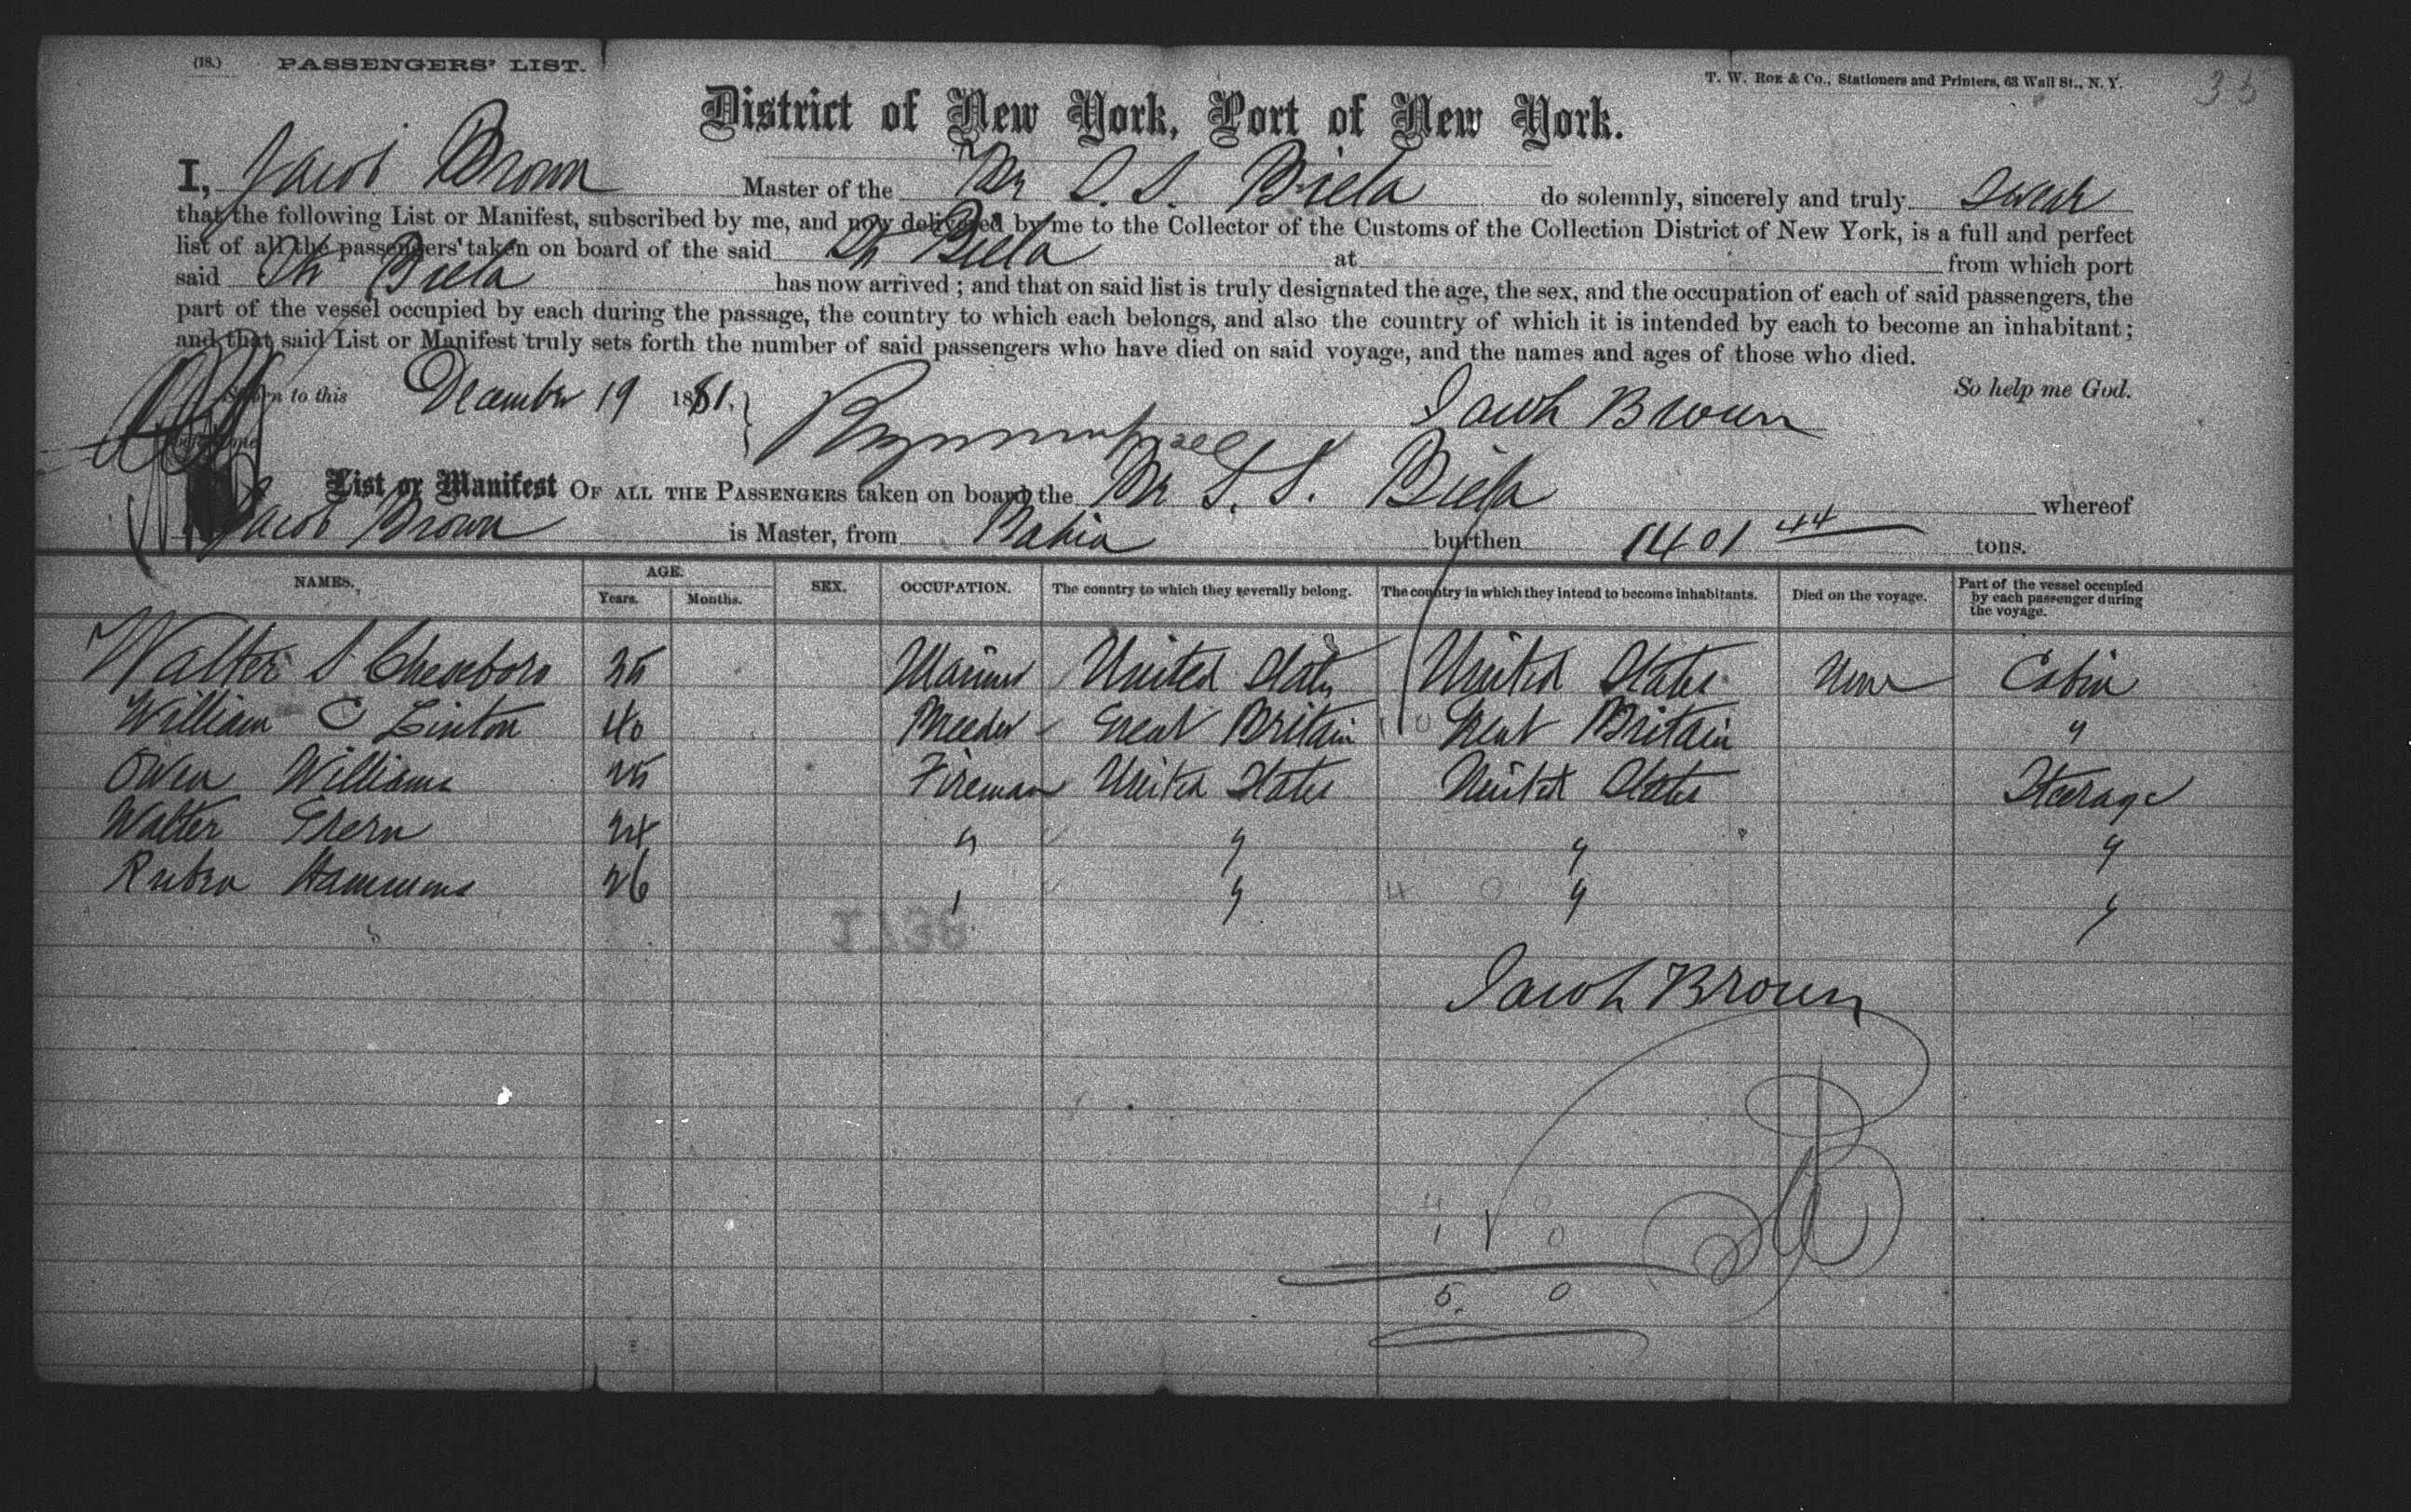 (18.) PASSENGERS' LIST.
T. W. Roe & Co., Stationers and Printers, 63 Wall St., N. Y.
District of New York, Port of New York.
I, Jacob Brown Master of the Br S. S. Biela do solemnly, sincerely and truly Swear
that the following List or Manifest, subscribed by me, and now delivered by me to the Collector of the Customs of the Collection District of New York, is a full and perfect
list of all the passengers taken on board of the said Str Biela at from which port
said Str Biela has now arrived; and that on said list is truly designated the age, the sex, and the occupation of each of said passengers, the
part of the vessel occupied by each during the passage, the country to which each belongs, and also the country of which it is intended by each to become an inhabitant;
and that said List or Manifest truly sets forth the number of said passengers who have died on said voyage, and the names and ages of those who died.
So help me God.
Sworn to this December 19 1881. Jacob Brown
before me
List or Manifest OF ALL THE PASSENGERS taken on board the Br S. S. Biela whereof
Jacob Brown is Master, from Bahia burthen 1401 44 tons.
NAMES. AGE. Years. Months. SEX. OCCUPATION. The country to which they severally belong. The country in which they intend to become inhabitants. Died on the voyage. Part of the vessel occupied by each passenger during the voyage.
Walter S Cheseboro 25 Mariner United States United States None Cabin
William C Linton 40 Breeder Great Britain Great Britain "
Owen Williams 25 Fireman United States United States Steerage
Walter Green 24 " " " "
Ruben Hammons 26 " " " "
Jacob Brown
4 0
1 0
5 0